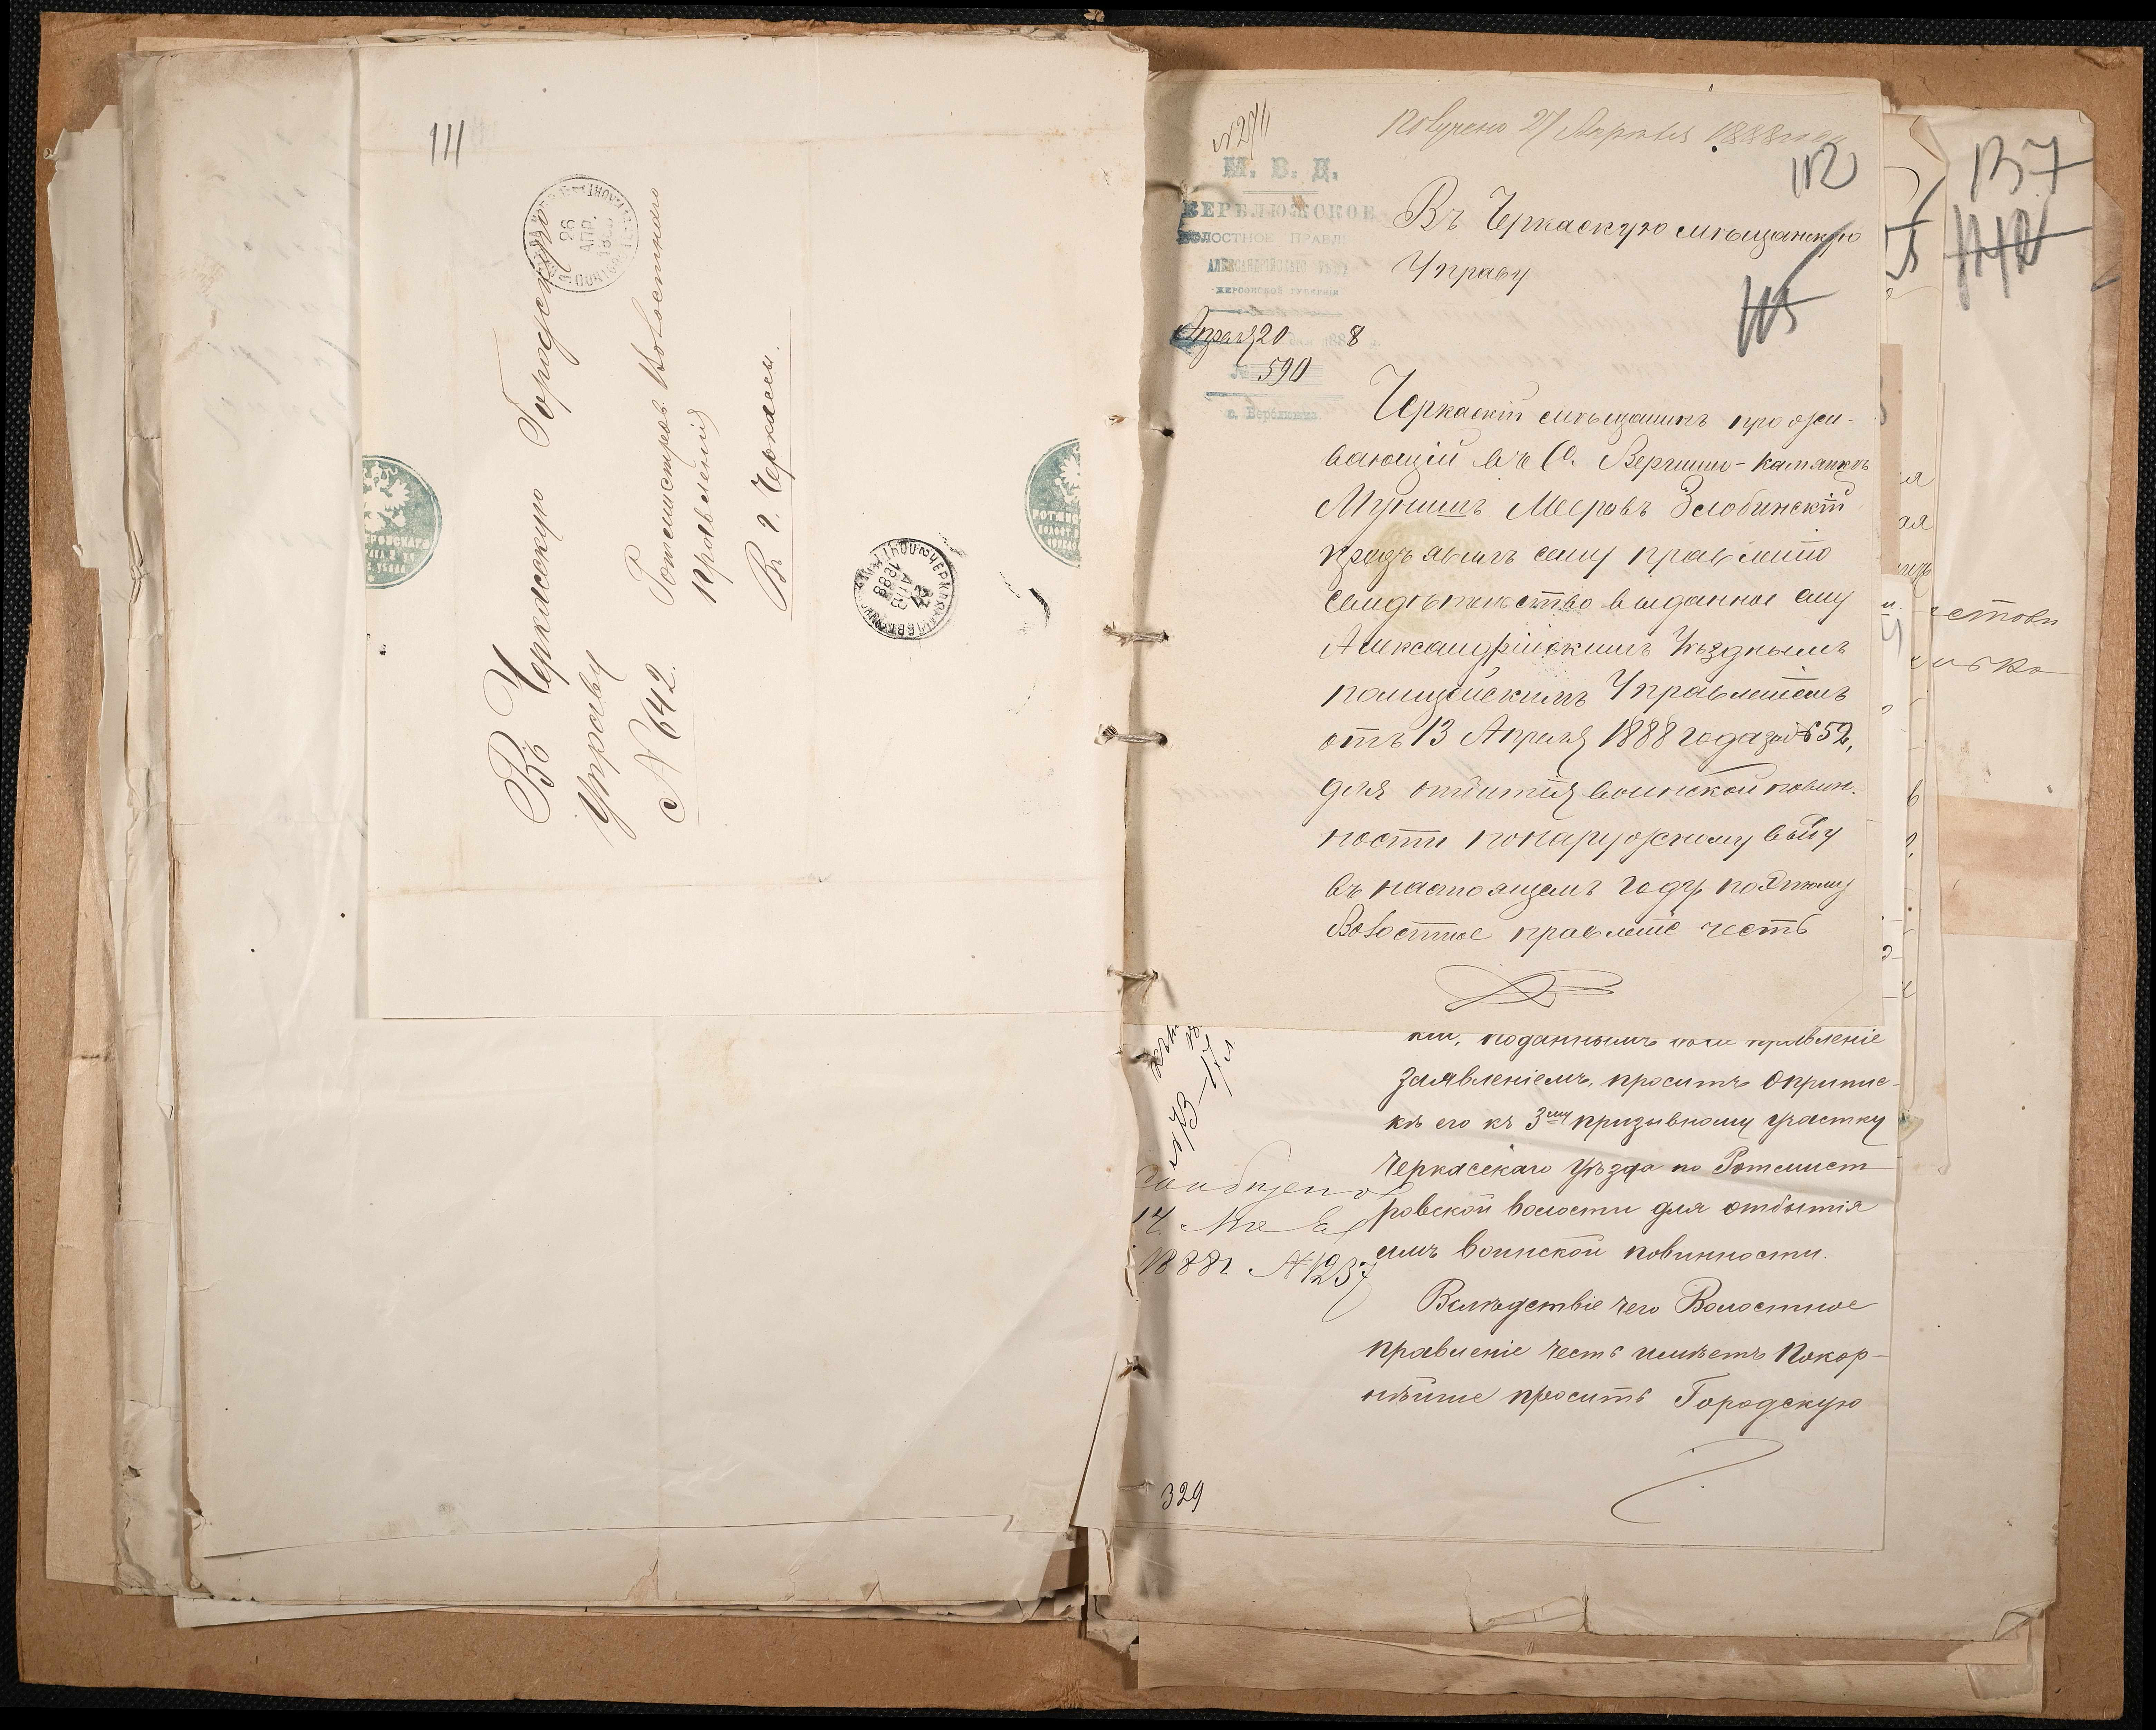 111
Въ Черкасскую Городскую
Управу
N 642.
Ротмистров. Волостнаго
Правленія
Въ г. Черкассы.
26
АПР.
27
АПР
1888
N271
Получено 27 Апрѣля 1888 года
112
М. В. Д.
ВЕРБЛЮЖСКОЕ
ВОЛОСТНОЕ ПРАВЛ.
АЛЕКСАНДРІЙСКАГО УѢЗДА
ХЕРСОНСКОЙ ГУБЕРНІИ
Апреля 20 дня 1888
№ 590
с. Верблюжка.
Въ Черкаскую мѣщанскую
Управу
115
Черкаскій мѣщанинъ прожи-
вающій въ С. Вершино-каmянкѣ
Мунишъ Мееровъ Злобинскій
предъявилъ сему правленію
свидѣтельство выданное ему
Александрійскимъ Уѣзднымъ
полицейскимъ Управленіемъ
отъ 13 Апреля 1888 года за № 652,
для отбитія воинской повин-
ности
въ настоящемъ году, поэтому
Волостное правленіе честь
поданнымъ правленіе
заявленіемъ, проситъ о припис-
кѣ его къ 3му призывному участку
Черкасскаго Уѣзда по Ротмист-
ровской волости для отбытія
имъ воинской повинности.
Вслѣдствіе чего Волостное
правленіе честь имѣетъ покор-
нѣйше просить Городскую
14
1888г. N1237
329
137